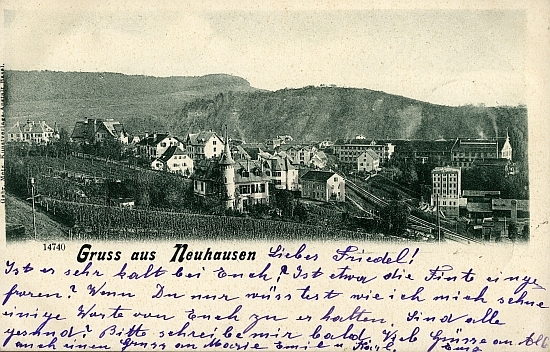 14740
Gruss aus Neuhausen
Liebes Friedel!
Ist es sehr kalt bei Euch? Ist etwa die Tinte einge
froren? Wenn Du nur wüsstest wie ich mich sehne
einige Worte von Euch zu erhalten. Sind alle
gesund? Bitte schreibe mir bald. Viele Grüsse an All
auch einen Gruss an Marie Emil u.